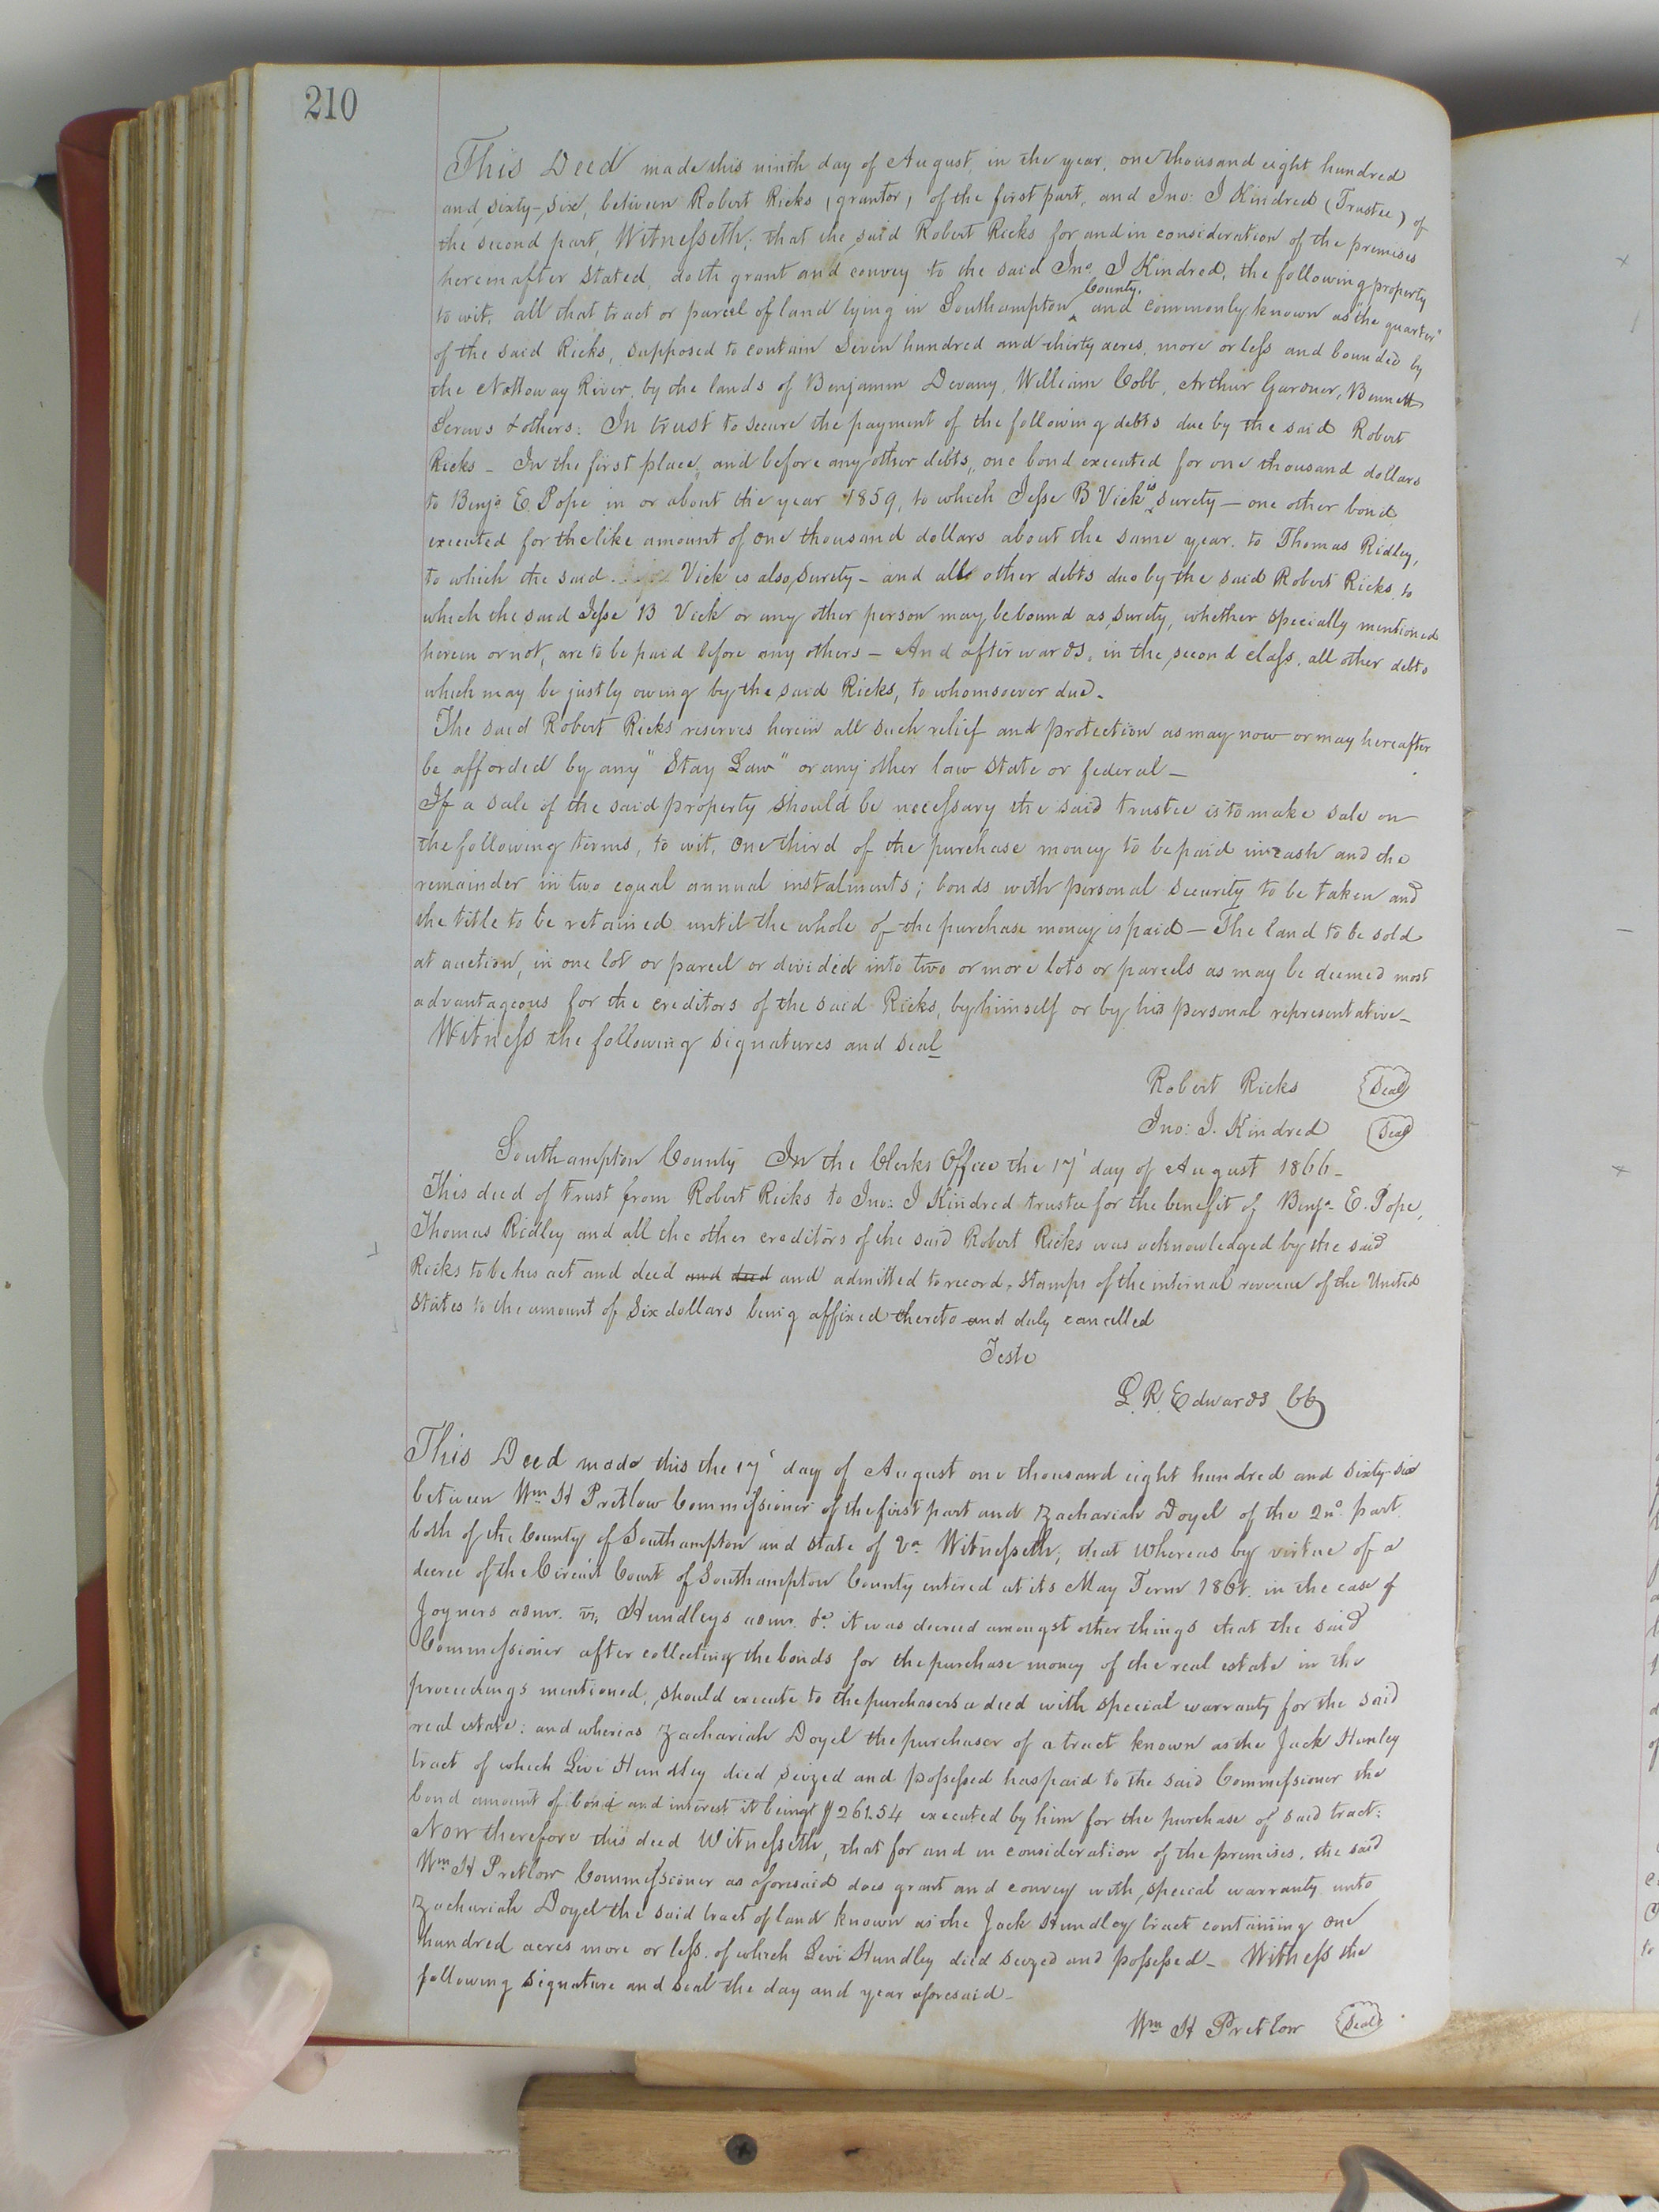 210
This Deed made this ninth day of August, in the year, one thousand eight hundred
and sixty-six, between Robert Ricks (grantor) of the first part, and Jno: J Kindred (Trustee) of
the second part, Witnesseth; that the said Robert Ricks for and in consideration of the premises
hereinafter stated, doth grant and convey to the said Jno. J Kindred, the following property
to wit, all that tract or parcel of land lying in Southampton County, and commonly known as "the quarter"
of the said Ricks, supposed to contain Seven hundred and thirty acres, more or less and bounded by
the Nottoway River, by the lands of Benjamin Devany, William Cobb, Arthur Gardner, Bennett
Screws & others: In trust to secure the payment of the following debts due by the said Robert
Ricks – In the first place, and before any other debts, one bond executed for one thousand dollars
to Benja E. Pope in or about the year 1859, to which Jesse B Vick is surety – one other bond
executed for the like amount of one thousand dollars about the same year, to Thomas Ridley,
to which the said Vick is also surety – and all other debts due by the said Robert Ricks, to
which the said Jesse B Vick or any other person may be bound as surety, whether specially mentioned
herein or not, are to be paid before any others – And afterwards, in the second class, all other debts
which may be justly owing by the said Ricks, to whomsoever due.
The said Robert Ricks reserves herein all such relief and protection as may now or may hereafter
be afforded by any "Stay Law" or any other law state or federal –
If a sale of the said property should be necessary the said trustee is to make sale on
the following terms, to wit, one third of the purchase money to be paid in cash and the
remainder in two equal annual instalments; bonds with personal security to be taken and
the title to be retained until the whole of the purchase money is paid – The land to be sold
at auction, in one lot or parcel or divided into two or more lots or parcels as may be deemed most
advantageous for the creditors of the said Ricks, by himself or by his personal representative –
Witness the following signatures and seal
Robert Ricks Seal
Jno: J. Kindred Seal
Southampton County In the Clerks Office the 17' day of August 1866 –
This deed of trust from Robert Ricks to Jno: J Kindred trustee for the benefit of Benja. E. Pope,
Thomas Ridley and all the other creditors of the said Robert Ricks was acknowledged by the said
Ricks to be his act and deed and deed and admitted to record, Stamps of the internal revenue of the United
States to the amount of Six dollars being affixed thereto and duly cancelled
Teste
L. R. Edwards Clk
This Deed made this the 17' day of August one thousand eight hundred and sixty-six
between Wm H Pretlow Commissioner of the first part and Zachariah Doyel of the 2nd. part
both of the County of Southampton and state of Va. Witnesseth; that whereas by virtue of a
decree of the Circuit Court of Southampton County entered at its May Term in the case of
Joyners admr. vs. Hundleys admr. &c. it was decreed amongst other things that the said
Commissioner after collecting the bonds for the purchase money of the real estate in the
proceedings mentioned, should execute to the purchasers a deed with special warranty for the said
real estate: and whereas Zachariah Doyel the purchaser of a tract known as the Jack Hunley
tract of which Levi Hundley died seized and possessed has paid to the said Commissioner the
bond amount of bond and interest it being $261.54 executed by him for the purchase of said tract:
Now therefore this deed Witnesseth, that for and in consideration of the premises, the said
Wm H Pretlow Commissioner as aforesaid does grant and convey with special warranty unto
Zachariah Doyel the said tract of land known as the Jack Hundley tract containing one
hundred acres more or less. of which Levi Hundley died seized and possessed – Witness the
following signature and seal the day and year aforesaid –
Wm H Pretlow Seal